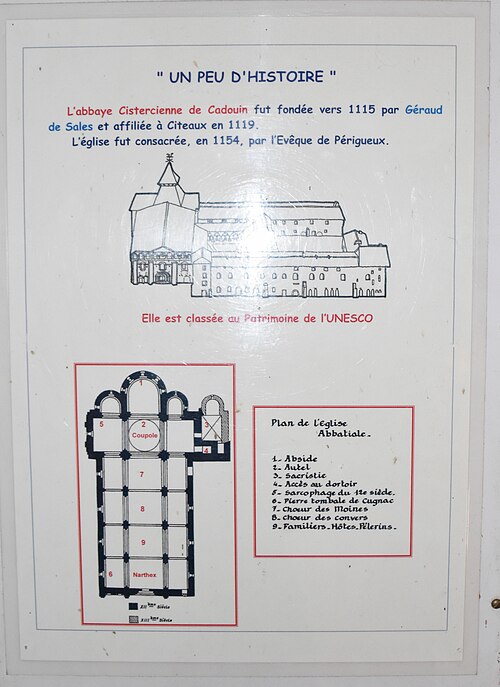 " UN PEU D'HISTOIRE "
L'abbaye Cistercienne de Cadouin fut fondée vers 1115 par Géraud
de Sales et affiliée à Citeaux en 1119.
L'église fut consacrée, en 1154, par l'Evêque de Périgueux.
Elle est classée au Patrimoine de l'UNESCO
1
5
2
3
Coupole
4
7
8
9
6
Narthex
XII ème Siècle
XIII ème Siècle
Plan de l'Eglise
Abbatiale.
1_ Abside
2_ Autel
3_ Sacristie
4_ Accès au dortoir
5_ Sarcophage du 12e siècle.
6_ Pierre tombale de Cugnac
7_ Chœur des Moines
8_ Chœur des convers
9_ Familiers_Hôtes_Pèlerins_